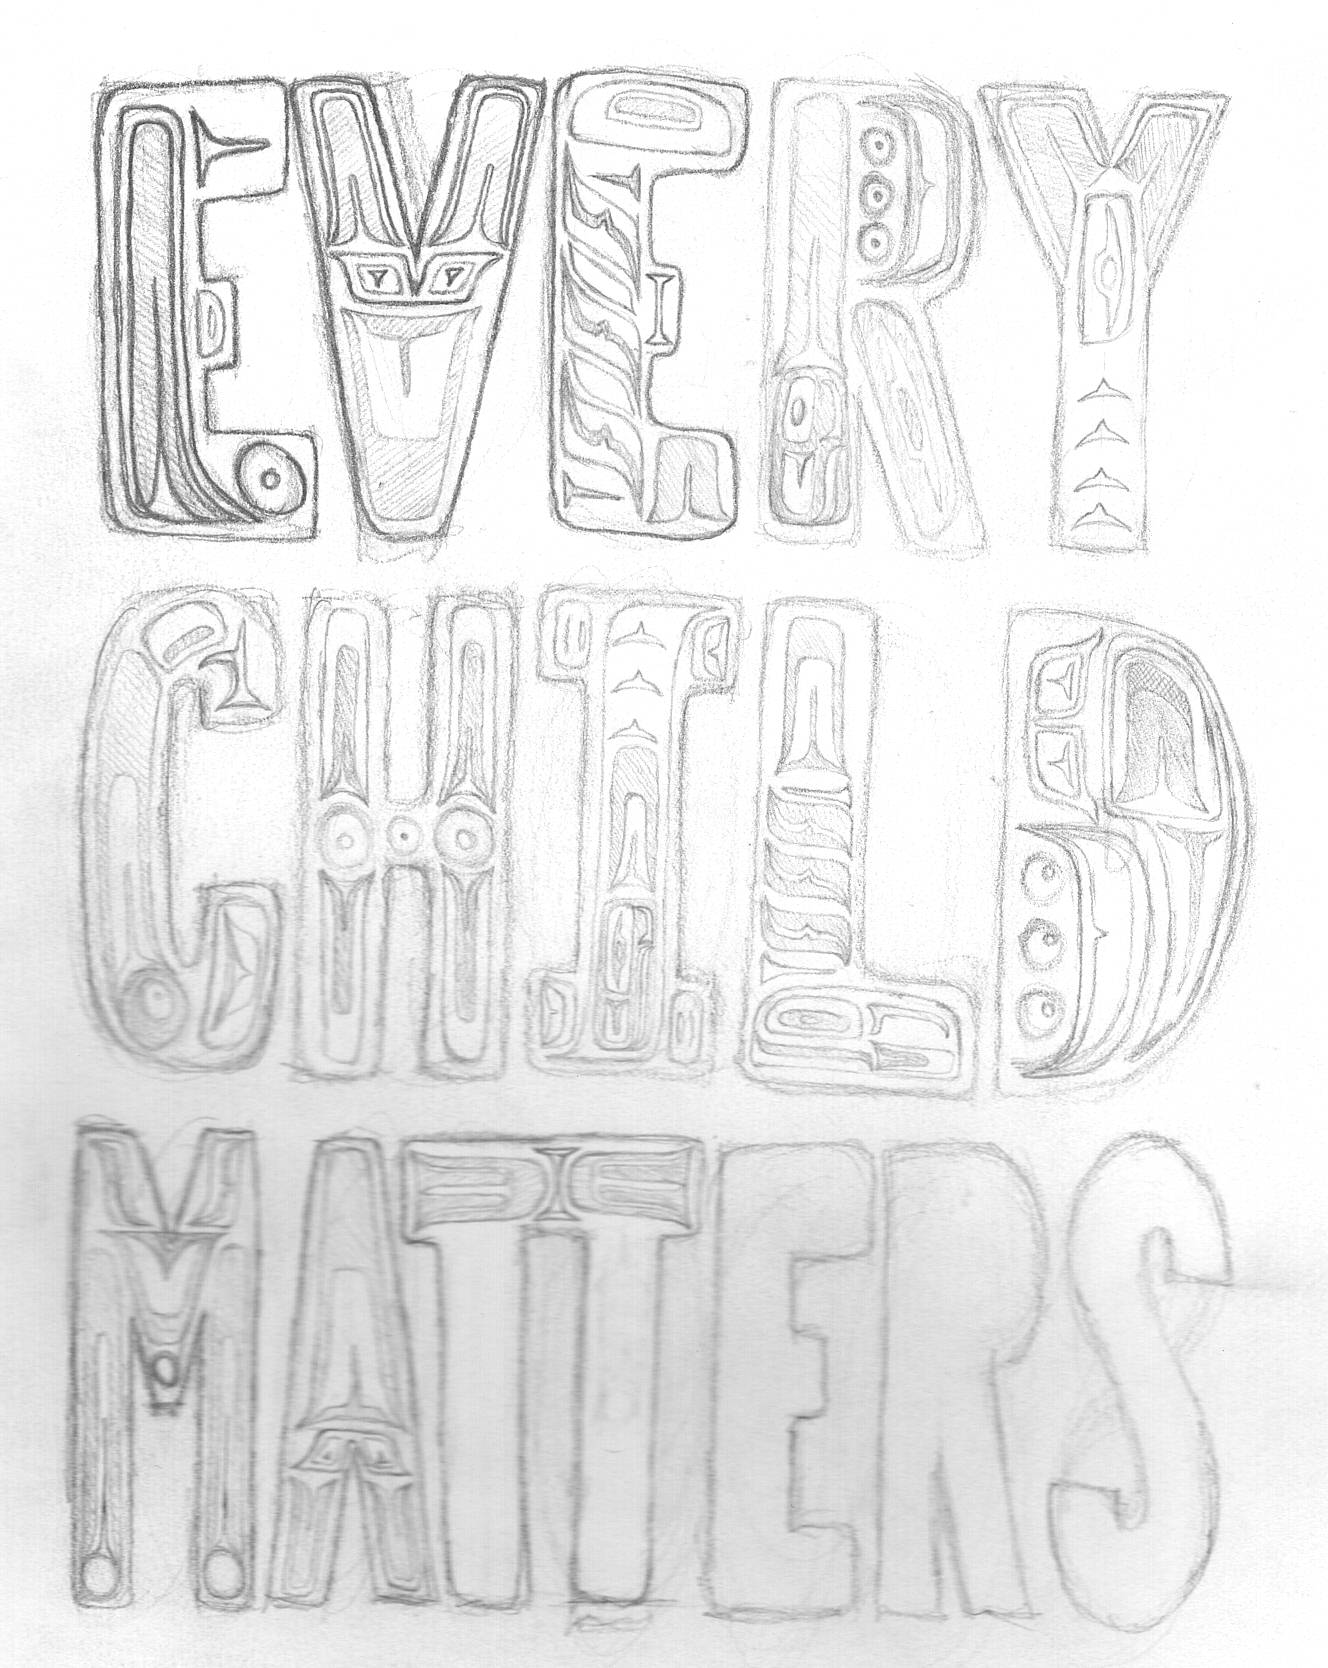 EVERY
CHILD
MATTERS